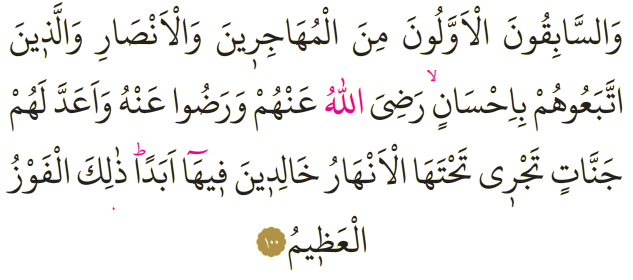 وَالسَّابِقُونَ الْاَوَّلُونَ مِنَ الْمُهَاجِرٖينَ وَالْاَنْصَارِ وَالَّذٖينَ
اتَّبَعُوهُمْ بِاِحْسَانٍۙ رَضِىَ اللّٰهُ عَنْهُمْ وَرَضُوا عَنْهُ وَاَعَدَّ لَهُمْ
جَنَّاتٍ تَجْرٖى تَحْتَهَا الْاَنْهَارُ خَالِدٖينَ فٖيهَٓا اَبَدًاؕ ذٰلِكَ الْفَوْزُ
الْعَظٖيمُ ١٠٠